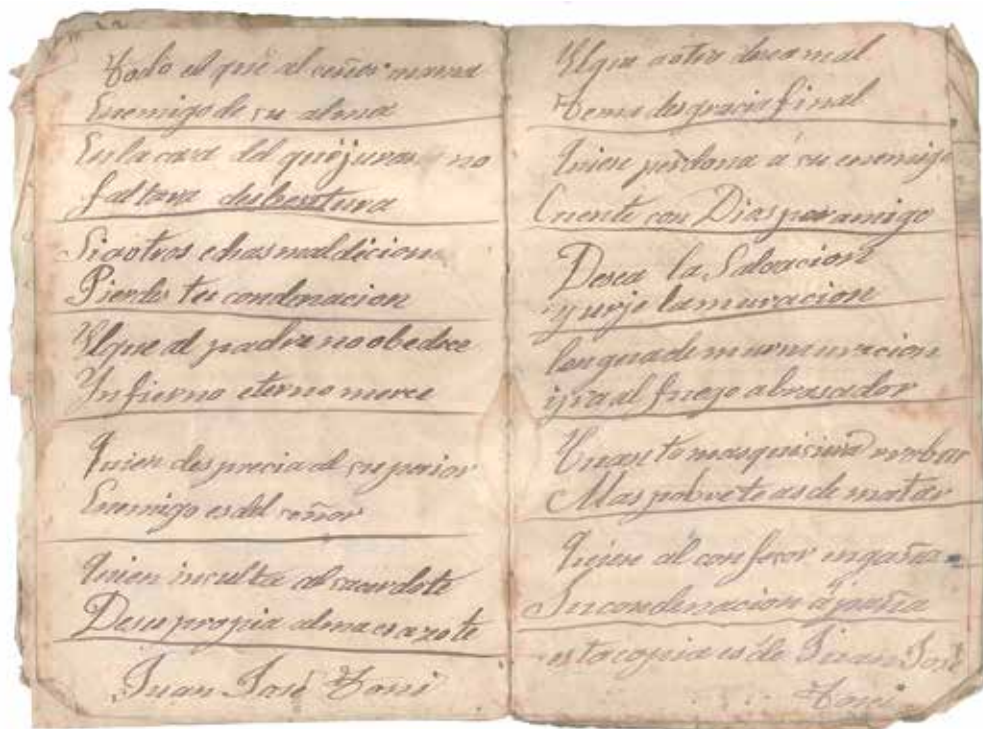 Todo el que al ceñor
Enemigo de su alma
En la cara del que jura no
faltara
Si a otros echas maldicion
Pierdes tu condenacion
El que al padre no obedece
Infierno eterno merece
Quien desprecia al superior
Enemigo es del señor
Quien insulta al sacerdote
De su propia alma es azote
Juan José Toni
El que a otro desea mal
Tema desgracia final
Quien perdona á su enemigo
Cuente con Dios por amigo
Desea la Salvacion
y
lengua de murmuracion
ira al fuego abrasador
Cuanto mas quisieras
Mas pobre te as de
Quien al confesor ingaña
Su condenacion apaña
esta copia es de Juan José
Toni